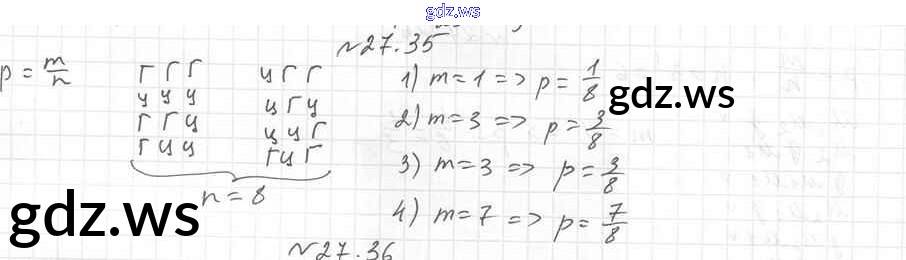 gdz.ws
№27.35
p = m/n
Г Г Г
ц Г Г
ц ц ц
ц Г ц
Г Г ц
ц ц Г
Г ц ц
Г ц Г
n = 8
1) m = 1 => p = 1/8
2) m = 3 => p = 3/8
3) m = 3 => p = 3/8
4) m = 7 => p = 7/8
gdz.ws
gdz.ws
№27.36